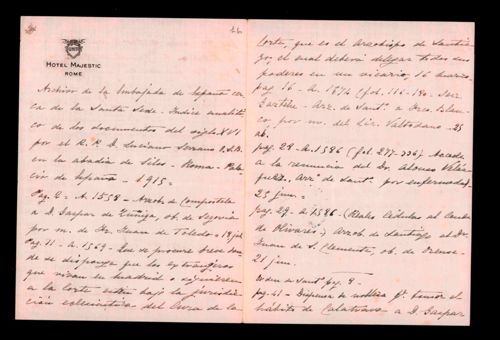 26
HOTEL MAJESTIC
ROME
Archivo de la Embajada de España cer-
ca de la Santa Sede - Indice analíti-
co de los documentos del siglo XVI
por el R. P. D. Luciano Serrano O.S.B.
en la abadía de Silos - Roma - Pala-
cio de España - 1915 =
Pag. - A. 1558 - Arzob. de Compostela
a D. Gaspar de Zúñiga, ob. de Segovia
por m. de Dr. Juan de Toledo = 18 jul
Pag. 11 - a. 1569 - Que se procure
de se disponga que los extranjeros
que vivan en Madrid o
a la Corte estén bajo la jurisdic-
ción eclesiástica del Cura de la
Corte, que es el Arzobispo de Santia-
go, el cual deberá delegar todos sus
poderes en un vicario, 16 marzo
pag. 16 - a. 1574 (fol. 116-180.
Arz. de Santº a Frco. Blan-
co, por m. del Lic. Valtodano - 25
ab.
pag. 28 - A. 1586 (fol. 277-336) Accede
a la renuncia del Dr. Alonso Veláz-
quez, Arzº de Santº por enfermedad
25 jun.
pag. 29 - a. 1586 - (Reales Cédulas al Conde
de Olivares.) Arzob. de Santiago al Dr.
Juan de S. Clemente, ob. de Orense -
21 jun.
Orden de Santº pag. 8 -
pag. 41 - Dispensa de nobleza pª tomar el
hábito de Calatrava a D. Gaspar